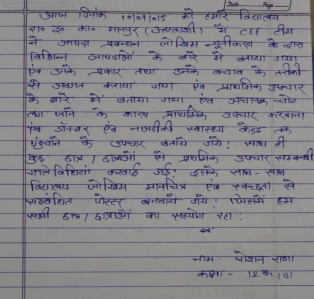 Date Page
आज दिनांक 10/09/015 को हमारे विद्यालय
रा० इ० का० मानपुर (उत्तरकाशी) में CEF टीम
ने आपदा प्रबन्धन जोखिम न्यूनीकरण के द्वारा
विभिन्न आपदाओं के बारे में बताया गया
एवं उनके प्रकार तथा उनके बचाव के तरीकों
से अवगत कराया गया एवं प्राथमिक उपचार
के बारे में बताया गया एवं अचानक चोट
लग जाने के कारण प्राथमिक उपचार करवाना
एवं डॉक्टर एवं नजदीकी स्वास्थ्य केन्द्र तक
पहुंचाने के उपचार बताये गये। साथ ही
कुछ छात्र / छात्राओं से प्राथमिक उपचार सम्बन्धी
गतिविधियां करवाई गई। इसके साथ-साथ
विद्यालय जोखिम मानचित्र एवं स्वच्छता से
सम्बंधित पोस्टर बनवाये गये। जिसमें हम
सभी छात्र / छात्राओं का सहयोग रहा।
नाम- रोशन राणा
कक्षा-